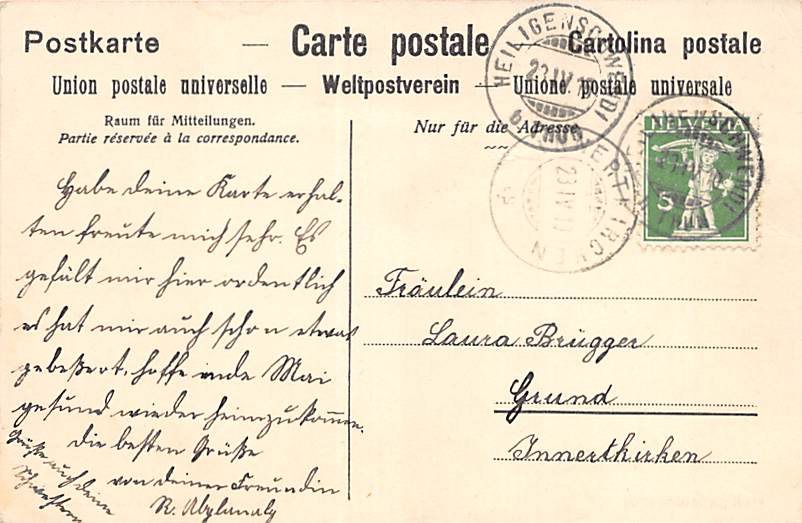 Postkarte — Carte postale Cartolina postale
Union postale universelle — Weltpostverein — Unione postale universale
Raum für Mitteilungen.
Partie réservée à la correspondance.
Nur für die Adresse.
HEILIGENSCHWENDI
23.IV.10
(THUN)
INNERTKIRCHEN
23.IV.10
HEILIGENSCHWENDI
(THUN)
HELVETIA
5
Habe deine Karte erhal-
ten freute mich sehr. Es
gefält mir hier ordentlich
es hat mir auch schon etwas
gebeßert, hoffe ende Mai
gesund wieder heimzukommen.
die besten Grüße
von deiner Freundin
R. Abplanalp
Grüße auch deine
Schwestern
Fräulein
Laura Brügger
Grund
Innertkirchen